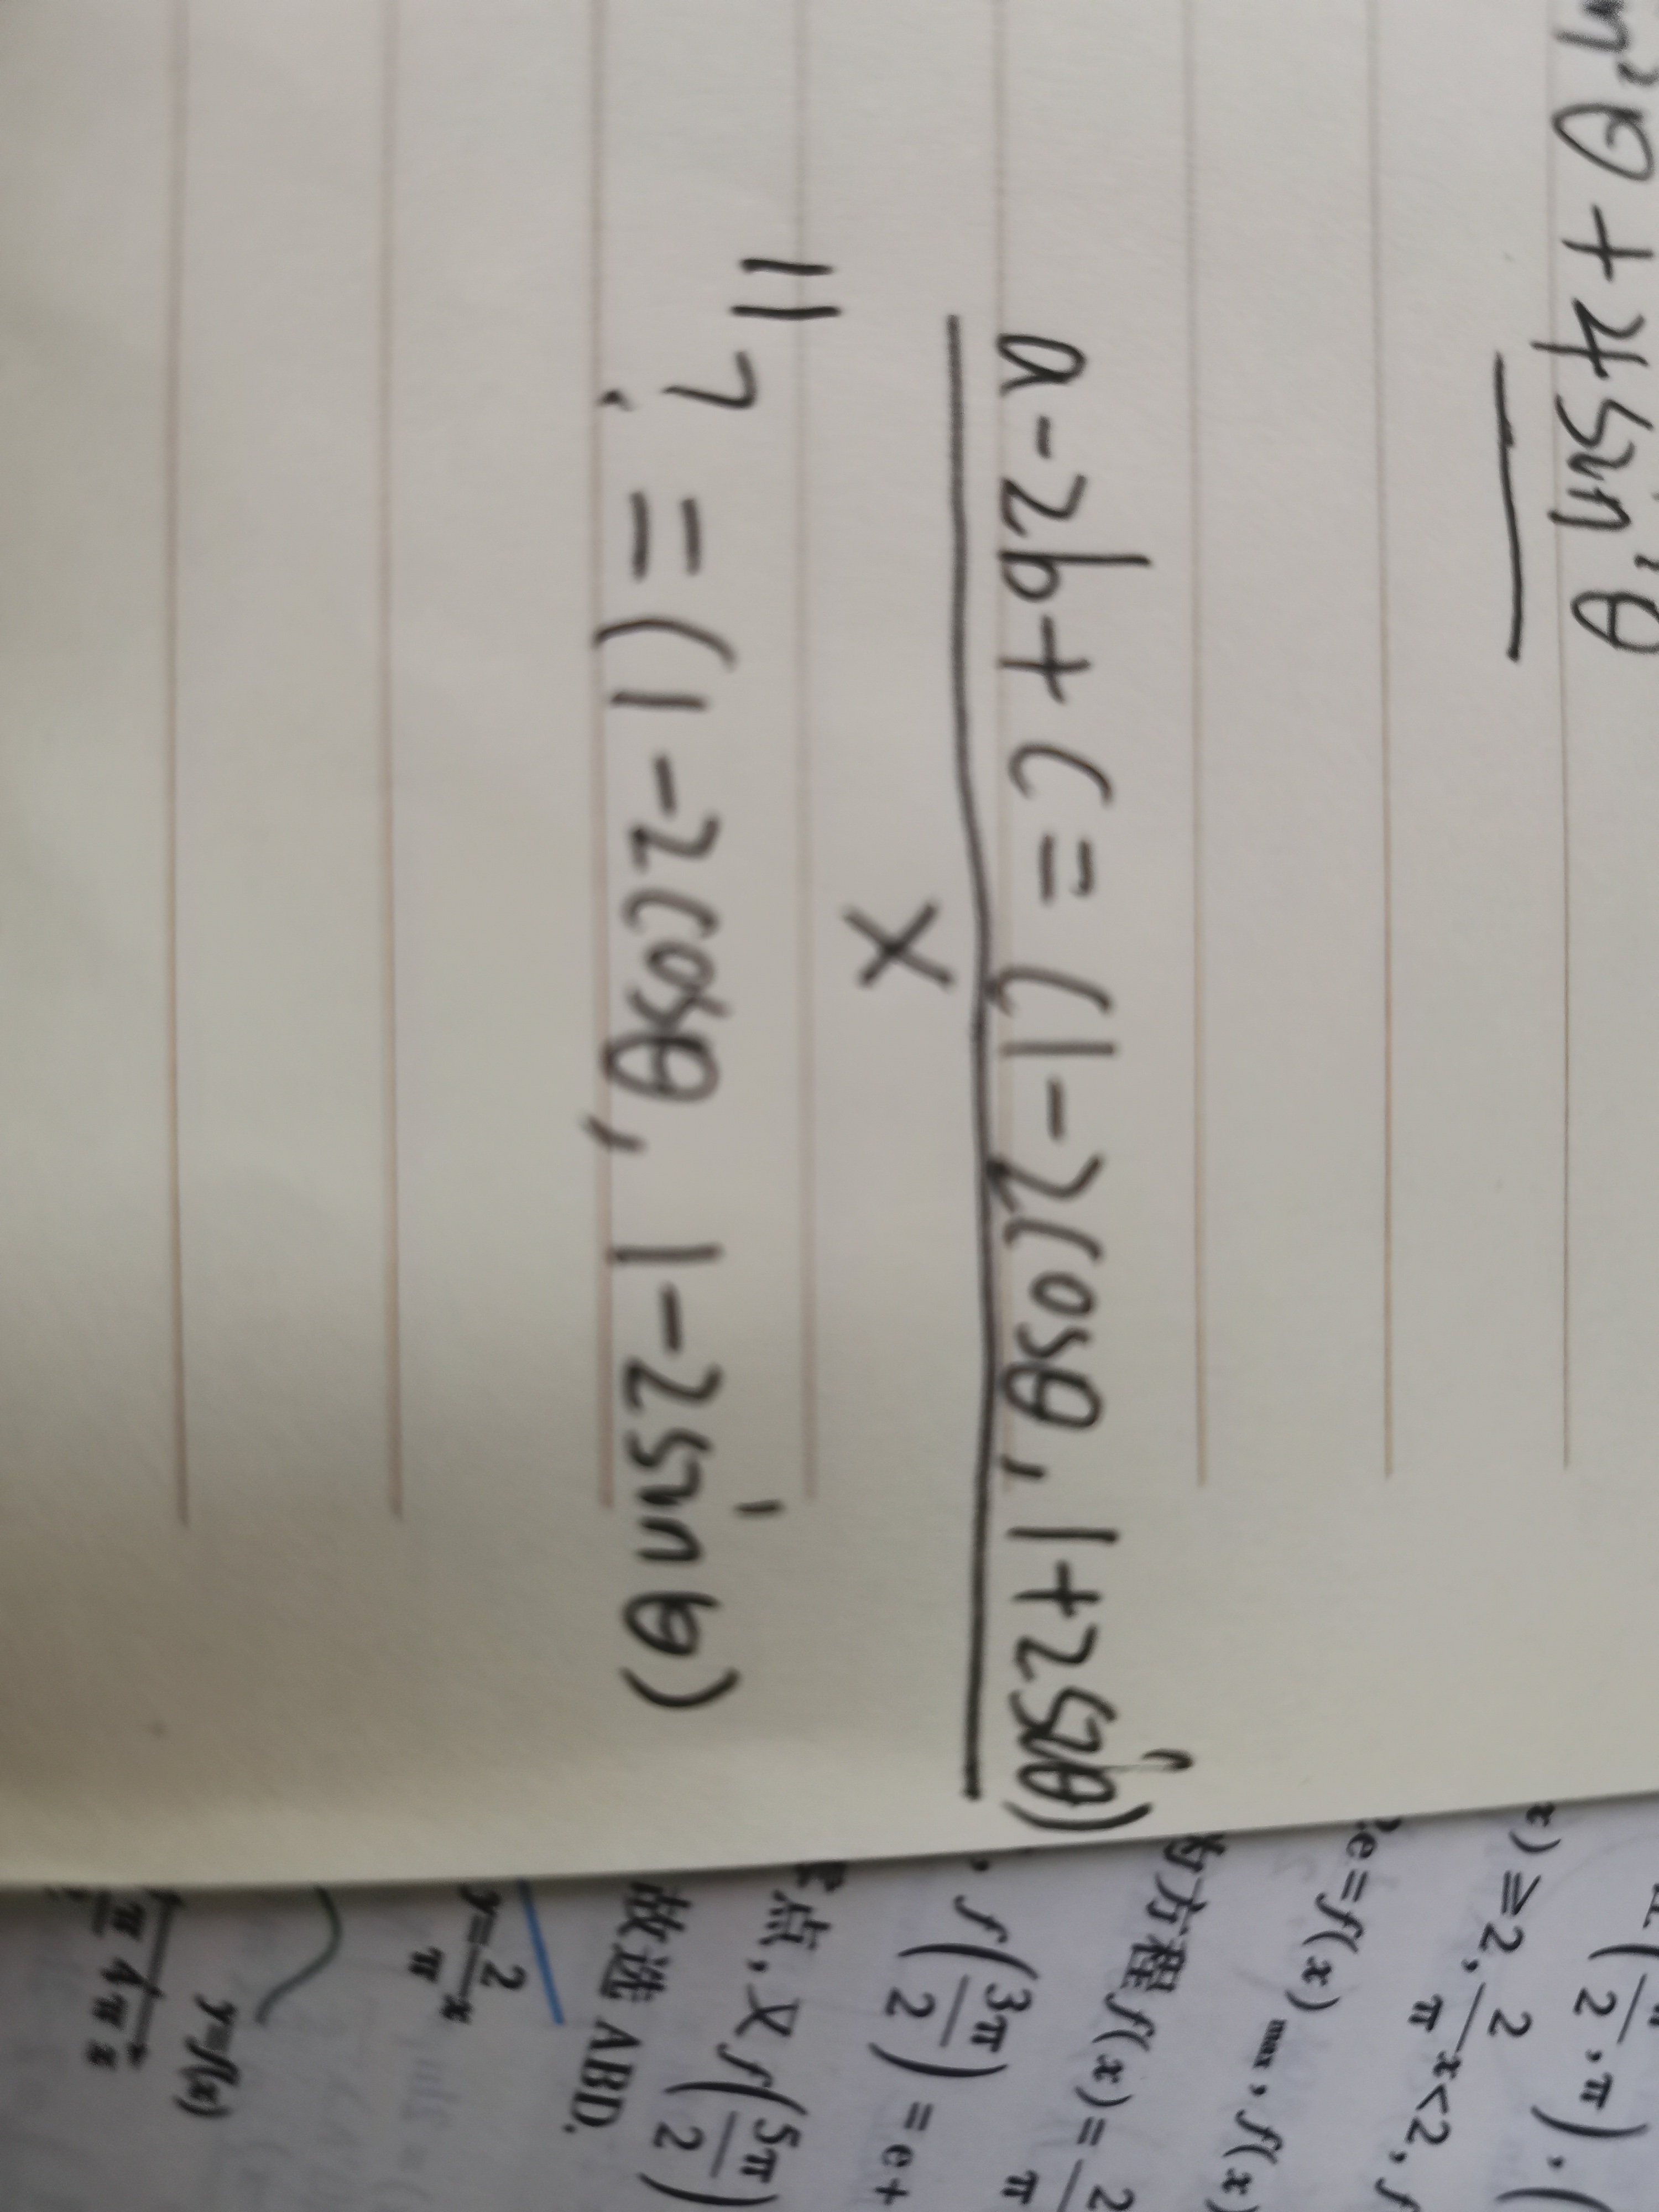 θ + 4sin²θ
a-2b+c=(1-2cosθ, 1+2sinθ)
×
=
? =(1-2cosθ, 1-2sinθ)
(π/2, π), (
x) ≥ 2, 2/π x < 2, f
e = f(x)max, f(x)
方程 f(x) = 2/π
, f(3π/2) = e +
点, 又 f(5π/2)
故选 ABD.
y = 2/π x
y=f(x)